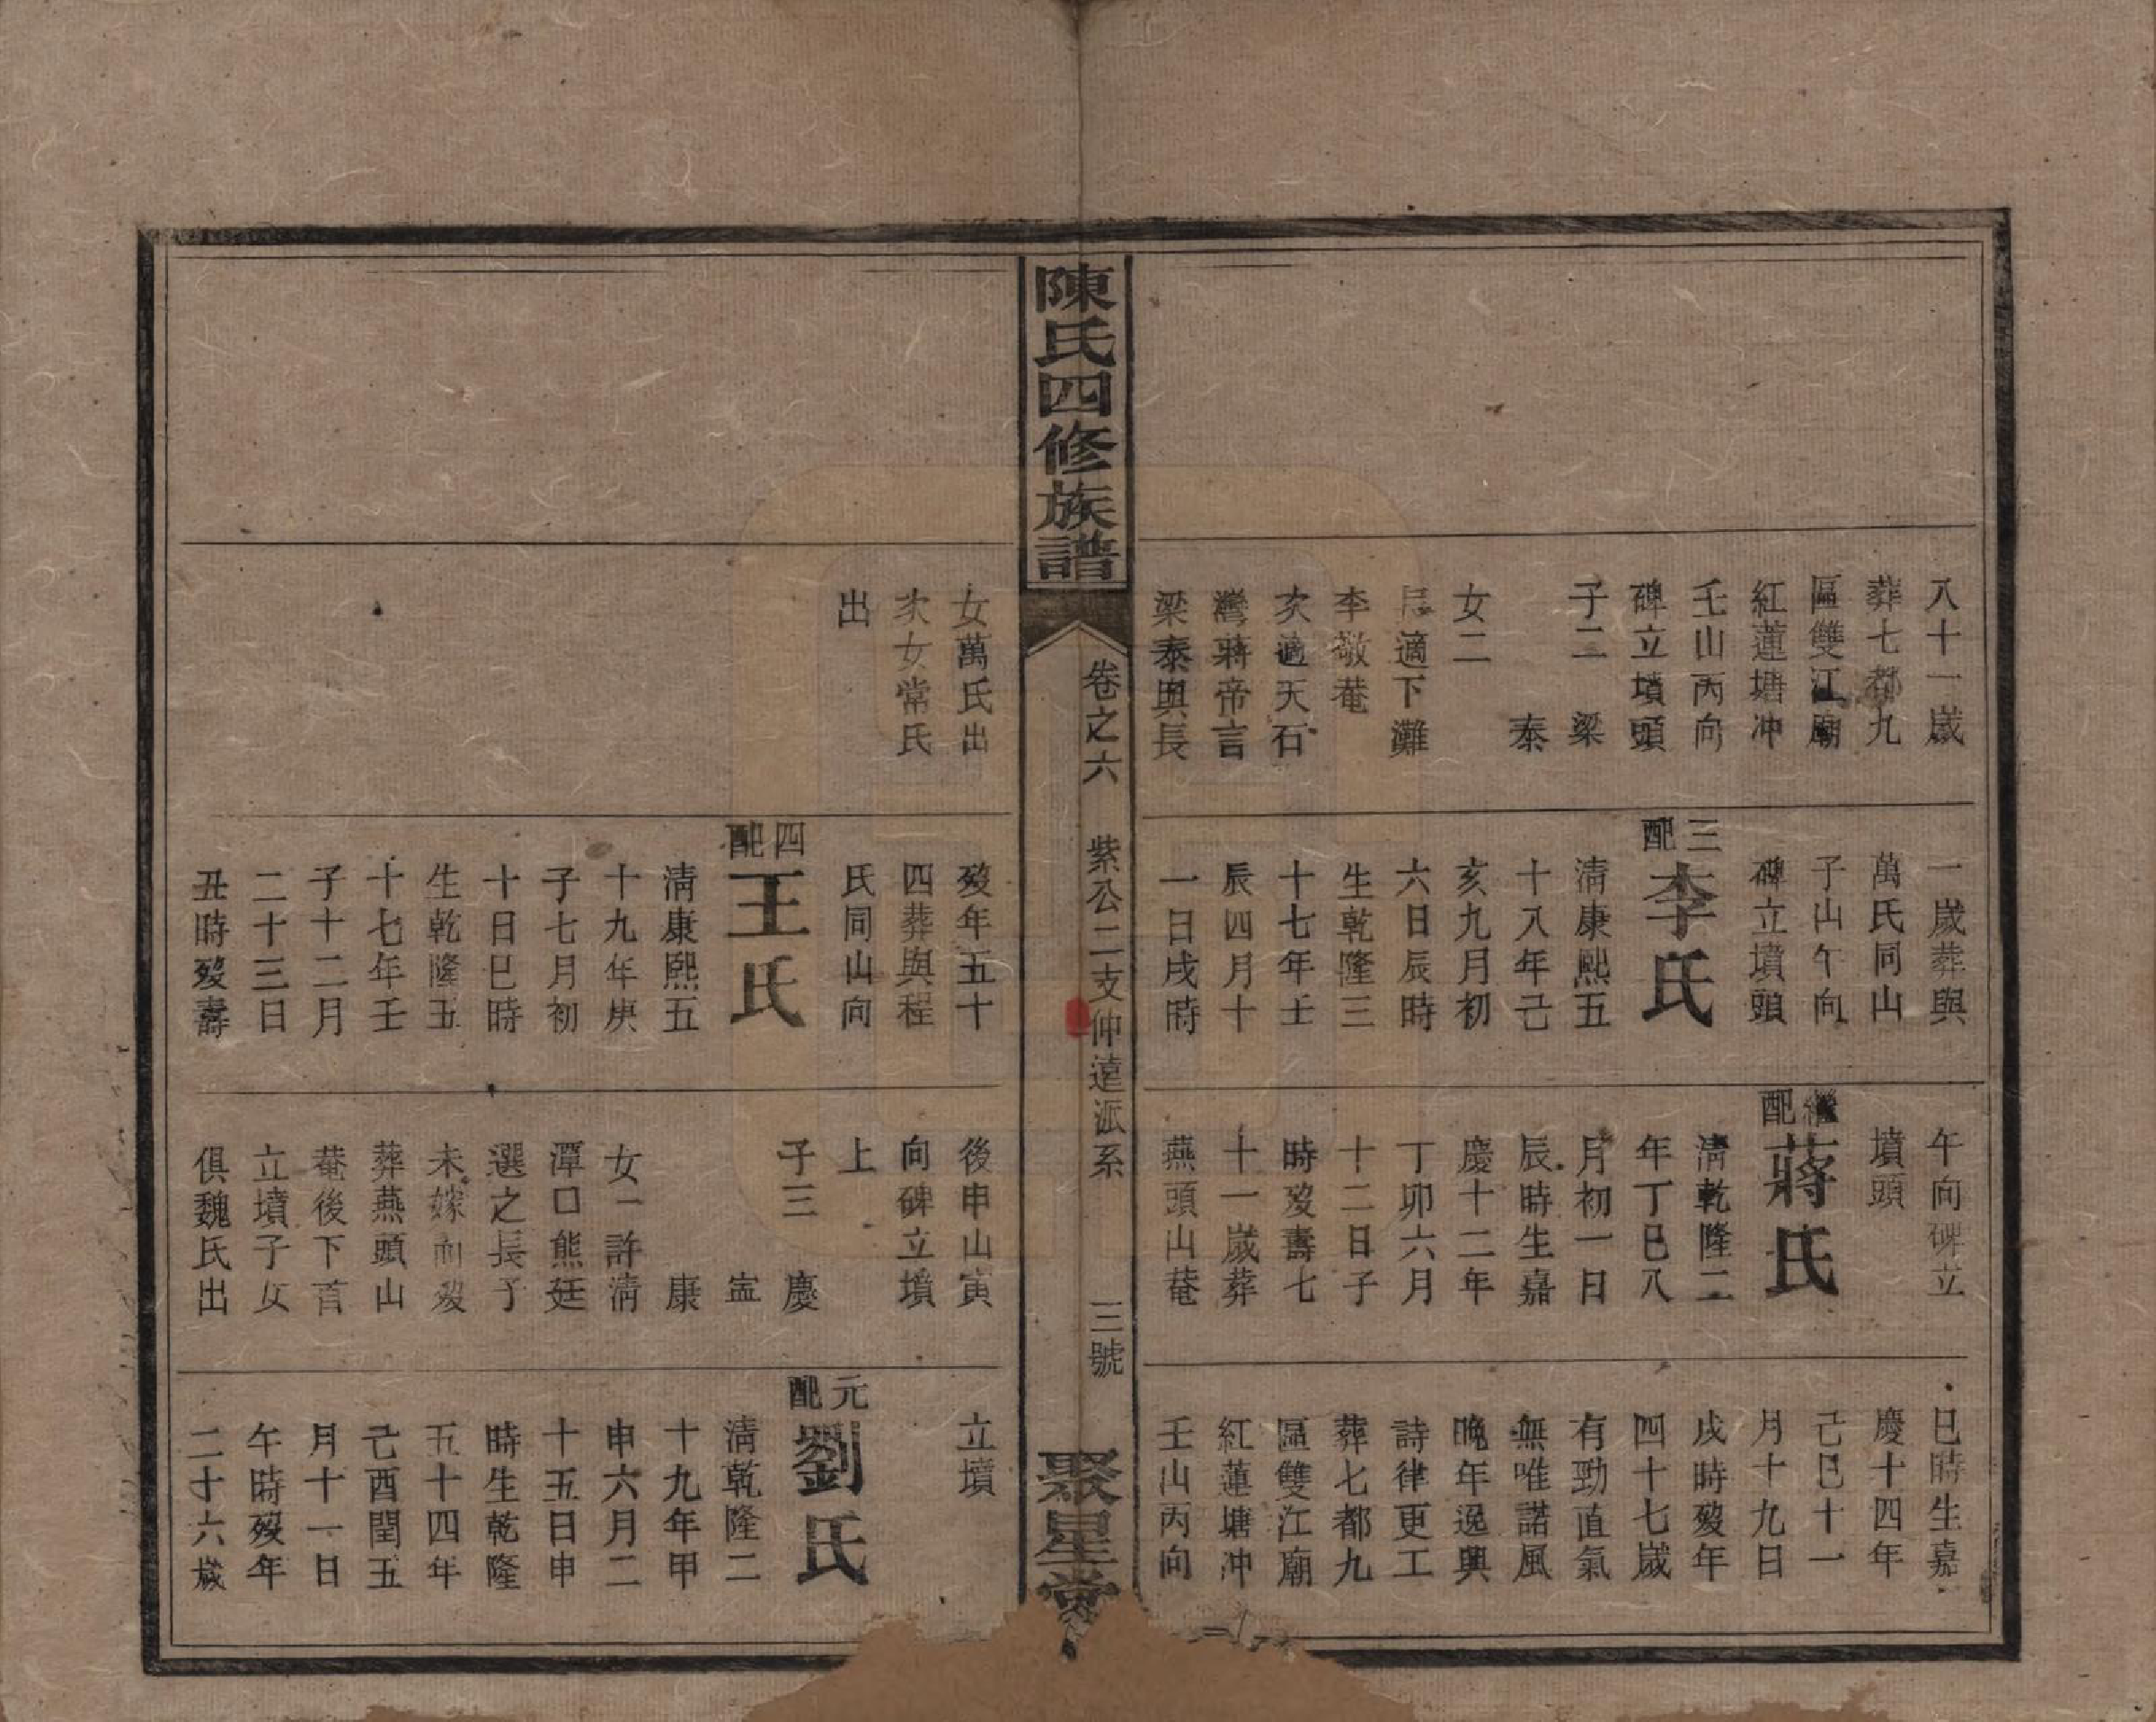 八十一歲
葬七都九
區雙江廟
紅蓮塘冲
壬山丙向
碑立墳頭
子二　梁
泰
女二
長適下灘
李敬菴
次適天石
灣蔣帝言
梁泰與長
一歲葬與
萬氏同山
子山午向
碑立墳頭
三配李氏
清康熙五
十八年己
亥九月初
六日辰時
生乾隆三
十七年壬
辰四月十
一日戌時
午向碑立
墳頭
繼配蔣氏
清乾隆二
年丁巳八
月初一日
辰時生嘉
慶十二年
丁卯六月
十二日子
時歿壽七
十一歲葬
燕頭山菴
巳時生嘉
慶十四年
己巳十一
月十九日
戌時歿年
四十七歲
有勁直氣
無唯諾風
晚年逸興
詩律更工
葬七都九
區雙江廟
紅蓮塘冲
壬山丙向
陳氏四修族譜
卷之六　紫公二支仲遠派系　三號
聚星堂
女萬氏出
次女常氏
出
歿年五十
四葬與程
氏同山向
四配王氏
清康熙五
十九年庚
子七月初
十日巳時
生乾隆五
十七年壬
子十二月
二十三日
丑時歿壽
後申山寅
向碑立墳
上
子三　慶
寍
康
女一許清
潭口熊廷
選之長子
未嫁而歿
葬燕頭山
菴後下首
立墳子女
俱魏氏出
立墳
元配劉氏
清乾隆二
十九年甲
申六月二
十五日申
時生乾隆
五十四年
己酉閏五
月十一日
午時歿年
二十六歲